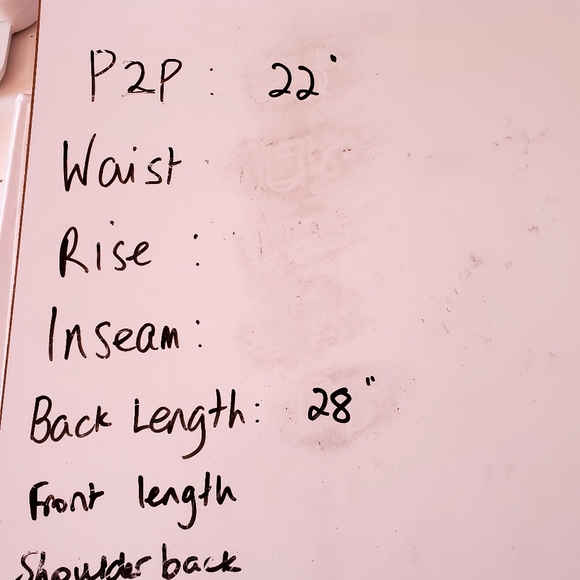 P2P : 22"
Waist
Rise :
Inseam:
Back Length: 28"
Front length
Shoulder back